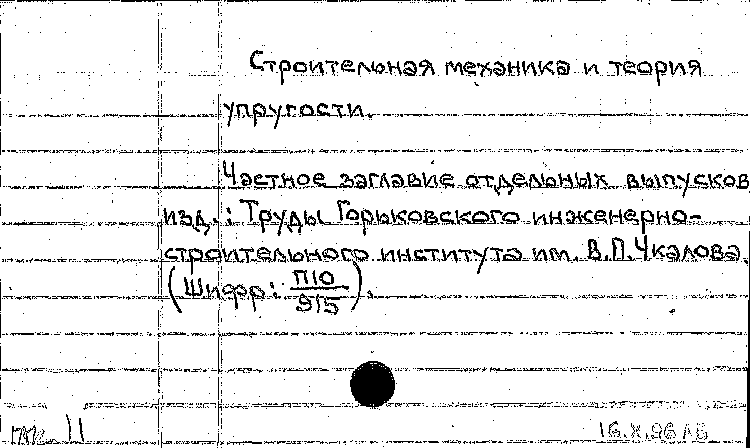 Строительная механика и теория
упругости.
Частное заглавие отдельных выпусков
изд.: Труды Горьковского инженерно-
строительного института им. В.П.Чкалова.
(Шифр: П10/915).
16.X.96